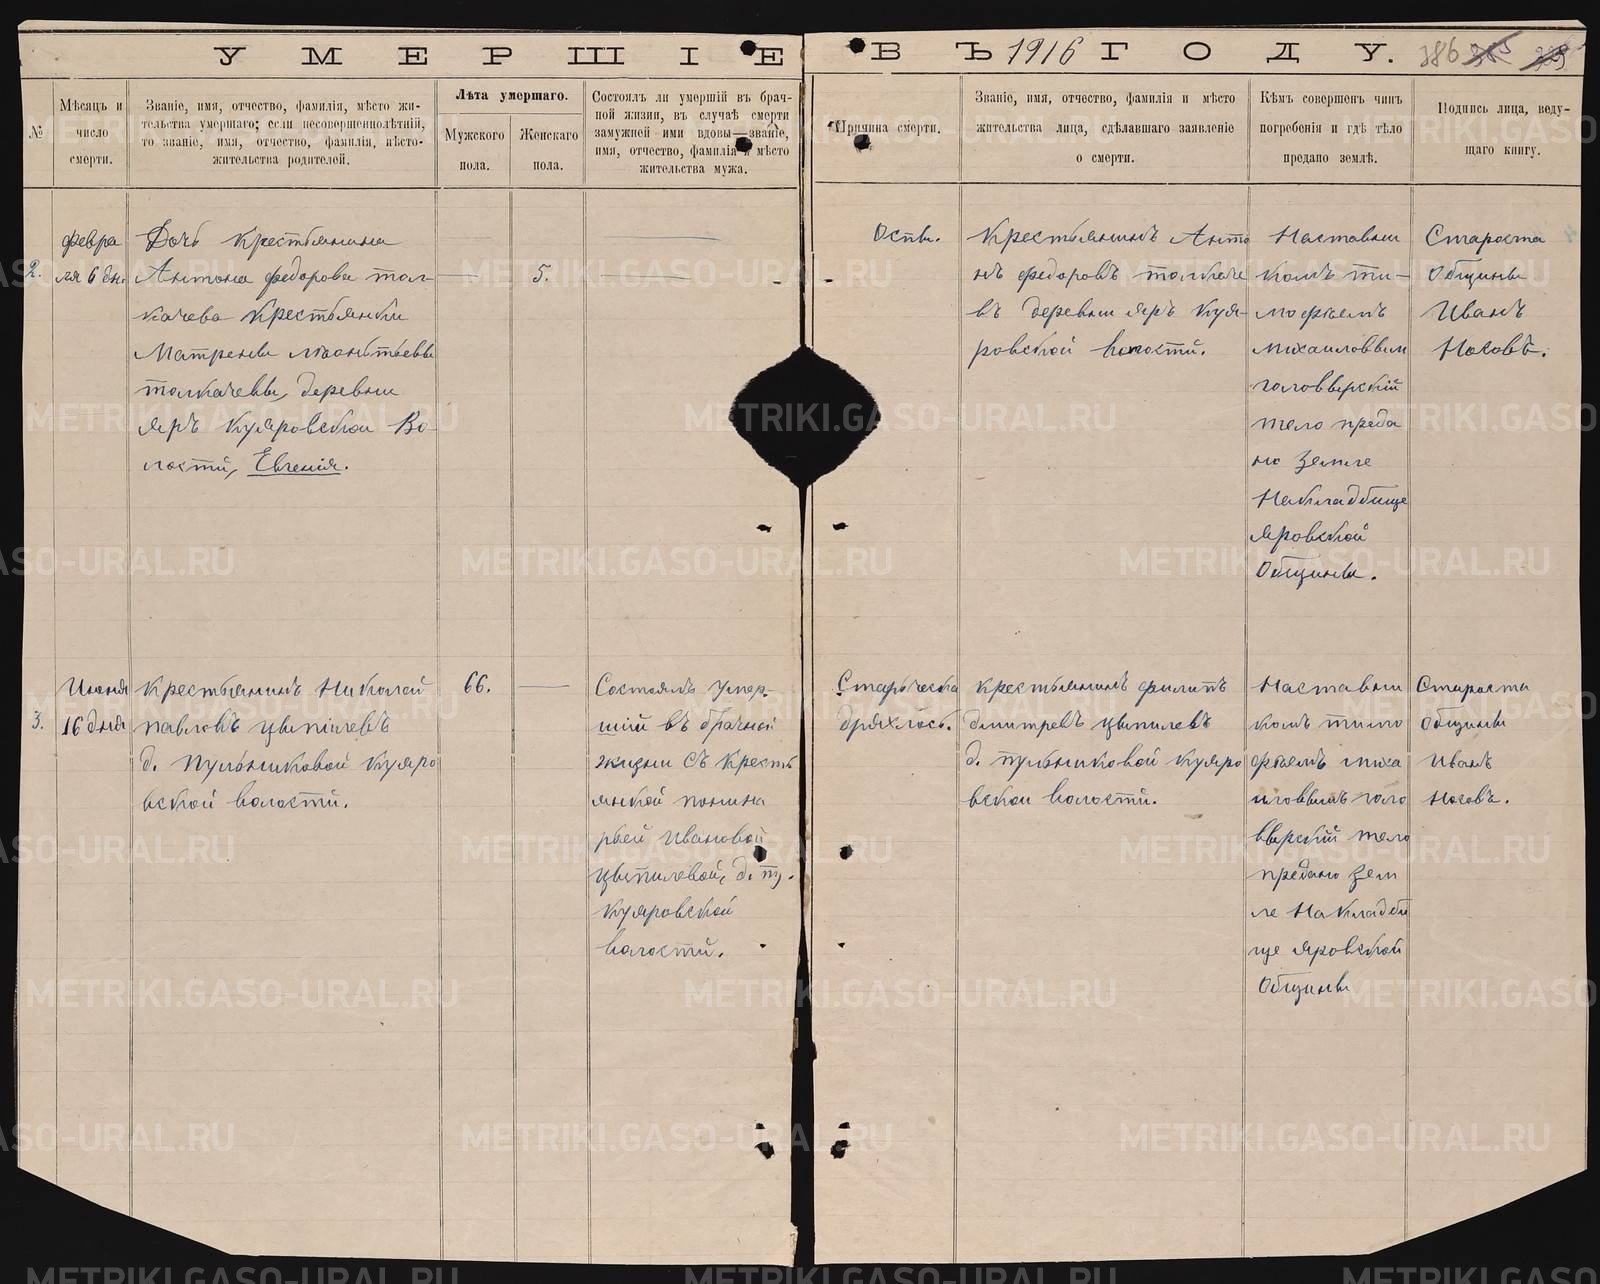 УМЕРШІЕ ВЪ 1916 ГОДУ. 386
№
Мѣсяцъ и
число
смерти.
Званіе, имя, отчество, фамилія, мѣсто жи-
тельства умершаго; если несовершеннолѣтній,
то званіе, имя, отчество, фамилія, мѣсто-
жительства родителей.
Лѣта умершаго.
Мужского
пола.
Женскаго
пола.
Состоялъ ли умершій въ брач-
ной жизни, въ случаѣ смерти
замужней—ими вдовы—званіе,
имя, отчество, фамилія и мѣсто
жительства мужа.
Причина смерти.
Званіе, имя, отчество, фамилія и мѣсто
жительства лица, сдѣлавшаго заявленіе
о смерти.
Кѣмъ совершенъ чинъ
погребенія и гдѣ тѣло
предано землѣ.
Подпись лица, веду-
щаго книгу.
2.
февра
ля 6 дня
Дочь Крестьянина
Антона федорова тол-
качева Крестьянки
Матрены
толкачевы, деревни
Яръ Куяровской Во-
лости, Евгенія.
5.
Оспы.
Крестьянинъ Анто
нъ федоровъ толкаче
въ деревни Яръ Куя-
ровской волости.
Наставни
комъ ти-
мофѣемъ
михаиловым
головырскій
тело преда
но Земле
На кладбище
Яровской
Общины.
Староста
Общины
Иванъ
Носовъ.
3.
Июня
16 дня
Крестьянинъ Николай
павловъ цыпилевъ
д. Пульниковой Куяро
вской волости.
66.
Состоялъ Умер-
ший въ брачной
жизни Съ Кресть
янкой
Ивановой
цыпилевой, д. п.
Куяровской
волости.
Старческа
дряхлось.
Крестьянинъ филипъ
дмитревъ цыпилевъ
д. пульниковой Куяро
вской волости.
Наставни
комъ тимо
фѣемъ миха
иловымъ голо
вырскій тело
предано Зем
ле На кладби
ще Яровской
Общины
Староста
Общины
Иванъ
Носовъ.
METRIKI.GASO-URAL.RU